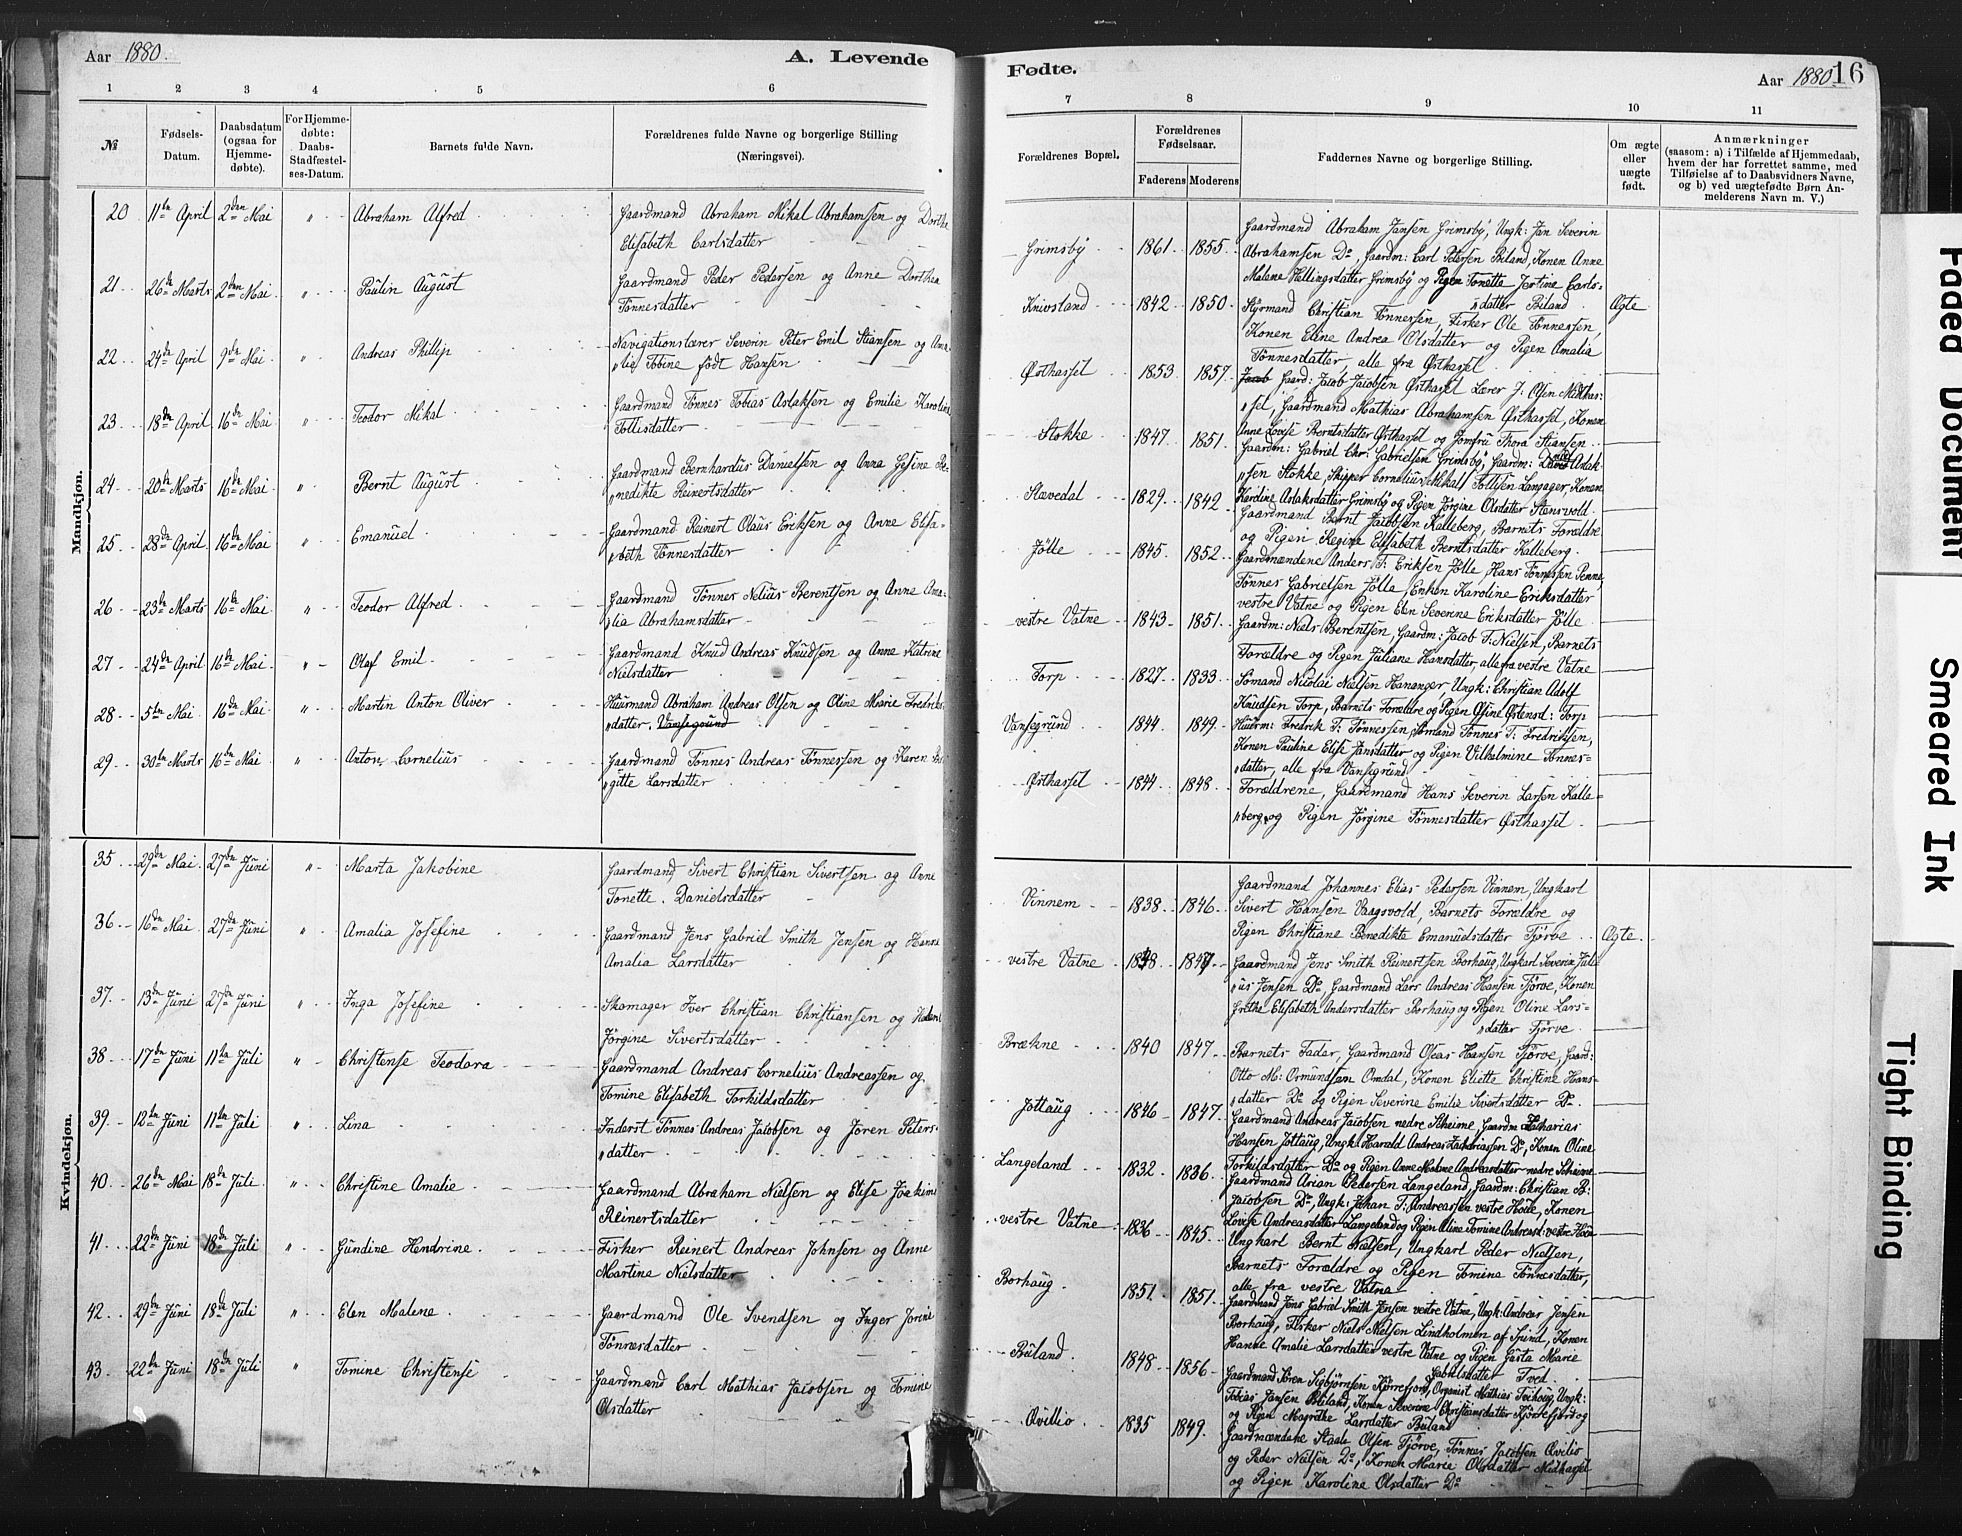 Aar 1880.
A. Levende
Fødte.
Aar 1880.
16
1 2 3 4 5 6
7 8 9 10 11
№
Fødsels-
Datum.
Daabsdatum
(ogsaa for
Hjemme-
døbte).
For Hjemme-
døbte:
Daabs-
Stadfæstel-
ses-Datum.
Barnets fulde Navn.
Forældrenes fulde Navne og borgerlige Stilling
(Næringsvei).
Forældrenes Bopæl.
Forældrenes
Fødselsaar.
Faderens Moderens
Faddernes Navne og borgerlige Stilling.
Om ægte
eller
uægte
født.
Anmærkninger
(saasom: a) i Tilfælde af Hjemmedaab,
hvem der har forrettet samme, med
Tilføielse af to Daabsvidners Navne,
og b) ved uægtefødte Børn An-
melderens Navn m. V.)
Mandkjøn.
20 11te April 2den Mai " Abraham Alfred Gaardmand Abraham Mikal Abrahamsen og Dorthe
Elisabeth Carlsdatter
21 26de Marts 2den Mai " Paulin August Gaardmand Peder Pedersen og Anne Dorthea
Tönnesdatter
22 24de April 9de Mai " Andreas Phillip Navigationslærer Severin Peter Emil Stiansen og Ama-
"lie Tobine födt Hansen
23 18de April 16de Mai " Teodor Mikal Gaardmand Tönnes Tobias Aslaksen og Emilie Karoline
Tollisdatter
24 20de Marts 16de Mai " Bernt August Gaardmand Bernhardus Danielsen og Anna Gesine Be-
"nedikte Reinertsdatter
25 28de April 16de Mai " Emanuel Gaardmand Reinert Olaus Eriksen og Anne Elisa-
"beth Tönnesdatter
26 23de Marts 16de Mai " Teodor Alfred Gaardmand Tönnes Nelius Berentsen og Anne Ama-
"lia Abrahamsdatter
27 24de April 16de Mai " Olaf Emil Gaardmand Knud Andreas Knudsen og Anne Katrine
Nielsdatter
28 5te Mai 16de Mai " Martin Anton Oliver Huusmand Abraham Andreas Olsen og Oline Marie Fredriks-
"datter. Vansegrund
29 30te Marts 16de Mai " Anton Cornelius Gaardmand Tönnes Andreas Tönnessen og Karen Bir-
"gitte Larsdatter
Kvindekjøn.
35 29de Mai 27de Juni " Marta Jakobine Gaardmand Sivert Christian Sivertsen og Anne
Tonette Danielsdatter
36 16de Mai 27de Juni " Amalia Josefine Gaardmand Jens Gabriel Smith Jensen og Hanne
Amalia Larsdatter
37 13de Juni 27de Juni " Inga Josefine Skomager Iver Christian Christiansen og Helene
Jörgine Sivertsdatter
38 17de Juni 11te Juli " Christense Teodora Gaardmand Andreas Cornelius Andreassen og
Tomine Elisabeth Torkildsdatter
39 12te Juni 11te Juli " Lina Inderst Tönnes Andreas Jacobsen og Joren Peters-
"datter
40 26de Mai 18de Juli " Christine Amalie Gaardmand Abraham Nielsen og Elise Joakime
Reinertsdatter
41 22de Juni 18de Juli " Gundine Hendrine Fisker Reinert Andreas Johnsen og Anne
Martine Nielsdatter
42 29de Juni 18de Juli " Elen Malene Gaardmand Ole Svendsen og Inger Jorine
Tönnesdatter
43 22de Juni 18de Juli " Tomine Christense Gaardmand Carl Mathias Jacobsen og Tomine
Olsdatter
Grimsby 1861 1855 Gaardmand Abraham Jansen Grimsby, Ungk: Jan Severin
Abrahamsen Do, Gaardm: Carl Petersen Biland, Konen Anne
Malene Hellingsdatter Grimsby og Pigen Tonette Justine Carls-
"datter Biland
Knivsland 1842 1850 Styrmand Christian Tönnersen, Fisker Ole Tönnesen, Ægte
Konen Eline Andrea Olsdatter og Pigen Amalia
Tönnesdatter, alle fra Østhassel
Østhassel 1853 1857 Jacob Gaard: Jacob Jacobsen Østhassel Lærer J: Olsen Midthas-
"sel, Gaardmand Mathias Abrahamsen Østhassel, Konen
Anne Lovise Berntsdatter Østhassel og Jomfru Thora Stiansen
Stokke 1847 1851 Gaardm: Gabriel Chr: Gabrielsen Grimsby, Gaardm: David Aslak-
"sen Stokke, Skipper Cornelius Mikal Tollisen Langager, Konen
Karoline Aslaksdatter Grimsby og Pigen Jörgine Olsdatter Stensvold
Stavedal 1829 1842 Gaardmand Bernt Jacobsen Kalleberg, Barnets Forældre
og Pigen Regine Elisabeth Berntsdatter Kalleberg
Jölle 1845 1852 Gaardmændene Anders T: Eriksen Jölle, Hans Tönnessen Penne,
Tönnes Gabrielsen Jölle, Enken Karoline Eriksdatter
vestre Vatne og Pigen Elen Severine Eriksdatter Jölle
vestre Vatne 1843 1851 Gaardm: Niels Berentsen, Gaardm: Jacob T: Nielsen, Barnets
Forældre og Pigen Juliane Hansdatter, alle fra vestre Vatne
Torp 1827 1833 Sömand Nicolai Nielsen Hananger, Ungk: Christian Adolf
Knudsen Torp, Barnets Forældre og Pigen Osine Östensd: Torp
Vansegrund 1844 1849 Huusm: Fredrik T: Tönnessen, Sömand Tönnes T: Fredriksen,
Konen Pauline Elise Jansdatter og Pigen Vilhelmine Tönnes-
"datter, alle fra Vansegrund
Østhassel 1844 1848 Forældrene, Gaardmand Hans Severin Larsen Kalle-
"berg, og Pigen Jörgine Tönnesdatter Østhassel
Vinnem 1838 1846 Gaardmand Johannes Elias Pedersen Vinnem, Ungkarl
Sivert Hansen Vaagsvold, Barnets Forældre og
Pigen Christiane Benedikte Emanuelsdatter Tjörve Ægte
vestre Vatne 1848 1847 Gaardmand Jens Smith Reinertsen Borhaug, Ungkarl Severin Juli-
"us Jensen Do, Gaardmand Lars Andreas Hansen Tjörve, Konen
Grethe Elisabeth Andersdatter Borhaug og Pigen Oline Lars-
"datter Tjörve
Brækne 1840 1847 Barnets Fader, Gaardmand Oseas Hansen Tjörve, Gaard:
Otto M: Ormundsen Omdal, Konen Eliette Christine Hans-
"datter Do og Pigen Severine Emilie Sivertsdatter Do
Jöttaug 1846 1847 Gaardmand Andreas Jacobsen nedre Skeime, Gaardm Zacharias
Hansen Jöttaug, Ungk: Harald Andreas Zakariassen Do, Konen Oline
Torkildsdatter Do og Pigen Anne Malene Andreasdatter nedre Skeime
Langeland 1832 1836 Gaardmand Arian Pedersen Langeland, Gaardm: Christian B:
Jacobsen Do, Ungk: Johan T: Andreassen vestre Hoie, Konen
Lovise Andreasdatter Langeland og Pigen Oline Tomine Andreasd: vestre Hoie
vestre Vatne 1836 1845 Ungkarl Bernt Nielsen, Ungkarl Peder Nielsen,
Barnets Forældre og Pigen Tomine Tönnesdatter,
alle fra vestre Vatne
Borhaug 1851 1851 Gaardmand Jens Gabriel Smith Jensen vestre Vatne, Ungk: Andreas Jensen
Borhaug, Fisker Niels Nielsen Lindholmen af Spind, Konen
Hanne Amalie Larsdatter vestre Vatne og Pigen Gusta Marie
Gabrielsdatter Tved
Buland 1848 1856 Gaardmand Sören Sigbjörnsen Kjörrefjord, Organist Mathias Tvihoug, Ungk:
Tobias Jansen Buland, Konen Severine Christiansdatter Kjörrefjord og
og Pigen Magrethe Larsdatter Buland
Qvillio 1835 1849 Gaardmændene Staale Olsen Tjörve, Tönnes Jacobsen Qvilio
og Peder Nielsen Do, Konen Marie Olsdatter Midhassel
og Pigen Karoline Olsdatter Do
Faded Document
Smeared Ink
Tight Binding